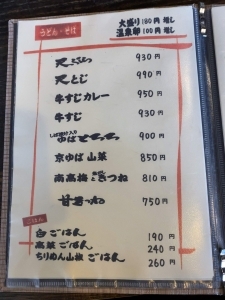 うどん・そば
大盛り 180円 増し
温泉卵 100円 増し
天ぷら 930 円
天とじ 990 円
牛すじカレー 950 円
牛すじ 930 円
しば漬け入り
ゆば 900 円
京ゆば 山菜 850 円
南高梅 きつね 810 円
甘きつね 750 円
ごはん
白ごはん 190 円
高菜ごはん 240 円
ちりめん山椒 ごはん 260 円